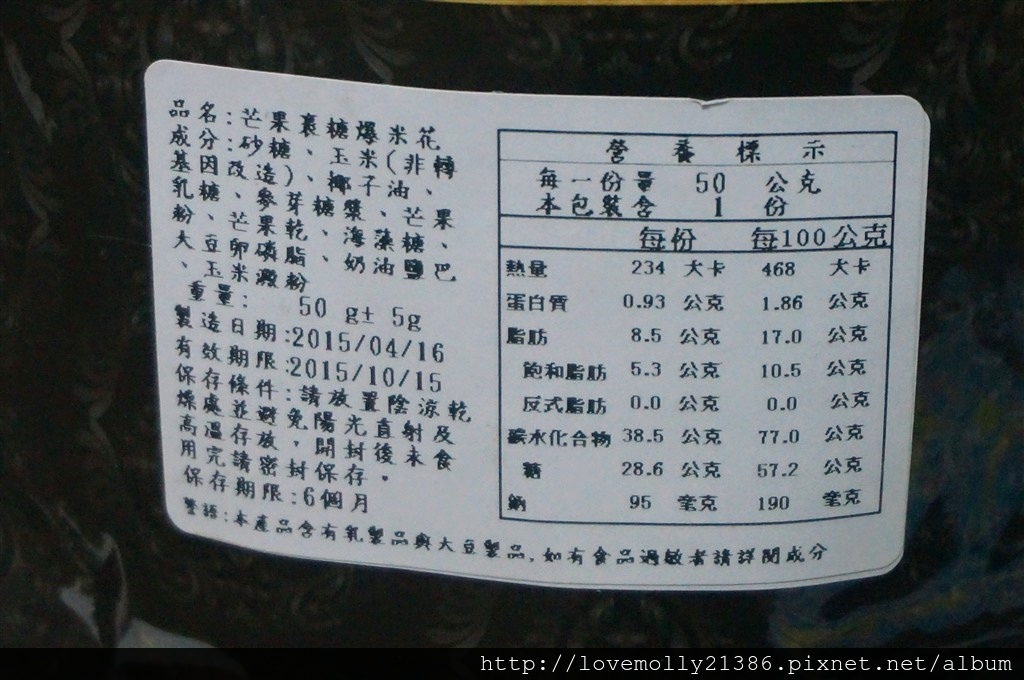 品名:芒果裹糖爆米花
成分:砂糖、玉米(非轉
基因改造)、椰子油、
乳糖、麥芽糖漿、芒果
粉、芒果乾、海藻糖、
大豆卵磷脂、奶油鹽巴
、玉米澱粉
重量: 50 g± 5g
製造日期:2015/04/16
有效期限:2015/10/15
保存條件:請放置陰涼乾
燥處並避免陽光直射及
高溫存放，開封後未食
用完請密封保存。
保存期限:6個月
營養標示
每一份量 50 公克
本包裝含 1 份
每份 每100公克
熱量 234 大卡 468 大卡
蛋白質 0.93 公克 1.86 公克
脂肪 8.5 公克 17.0 公克
飽和脂肪 5.3 公克 10.5 公克
反式脂肪 0.0 公克 0.0 公克
碳水化合物 38.5 公克 77.0 公克
糖 28.6 公克 57.2 公克
鈉 95 毫克 190 毫克
警語:本產品含有乳製品與大豆製品,如有食品過敏者請詳閱成分
http://lovemolly21386.pixnet.net/album